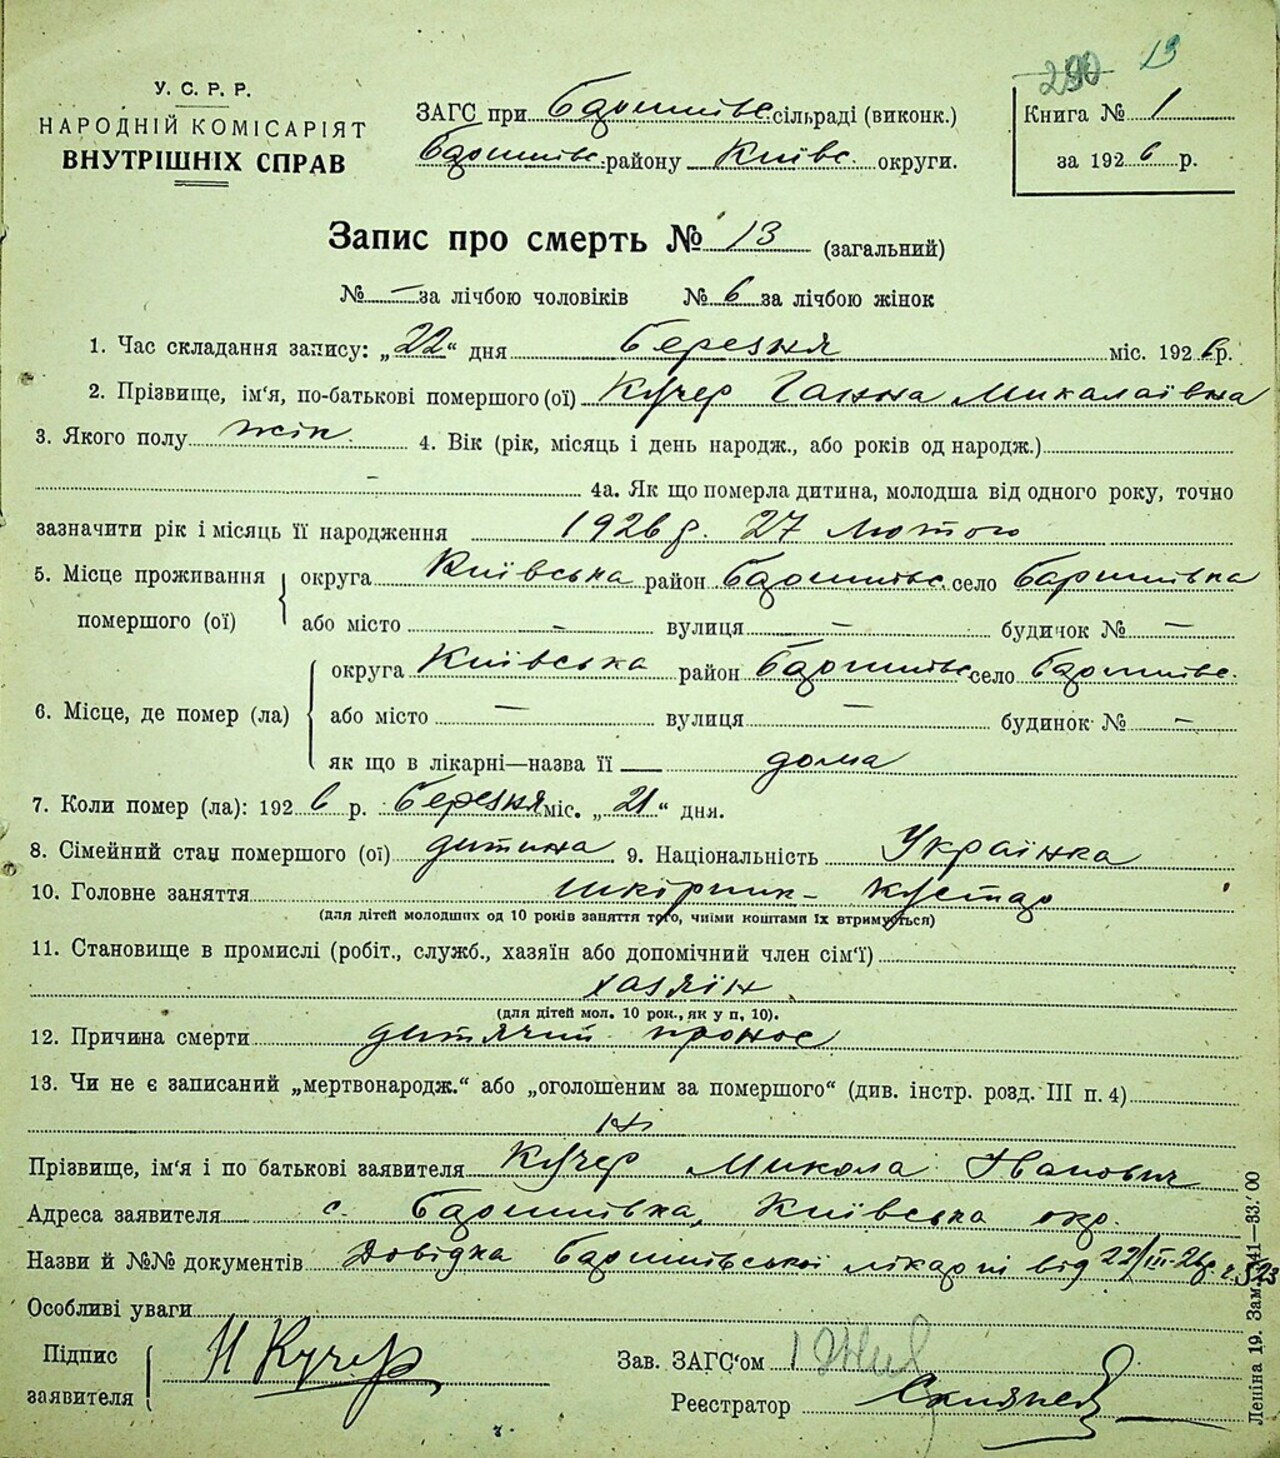 290 13
У. С. Р. Р.
НАРОДНІЙ КОМІСАРІЯТ
ВНУТРІШНІХ СПРАВ
ЗАГС при Баришівс. сільраді (виконк.)
Баришівс. району Київс. округи.
Книга № 1
за 1926 р.
Запис про смерть № 13 (загальний)
№ — за лічбою чоловіків № 6 за лічбою жінок
1. Час складання запису: „22“ дня березня міс. 1926 р.
2. Прізвище, ім‘я, по-батькові помершого (ої) Кучер Ганна Миколаївна
3. Якого полу жін. 4. Вік (рік, місяць і день народж., або років од народж.)
— 4а. Як що померла дитина, молодша від одного року, точно
зазначити рік і місяць її народження 1926 р. 27 лютого
5. Місце проживання помершого (ої) округа Київська район Баришівс. село Баришівка
або місто — вулиця — будинок № —
6. Місце, де помер (ла) округа Київська район Баришівс. село Баришівс.
або місто — вулиця — будинок № —
як що в лікарні—назва її — дома
7. Коли помер (ла): 1926 р. березня міс. „21“ дня.
8. Сімейний стан помершого (ої) дитина 9. Національність Українка
10. Головне заняття шкірник - кустар
(для дітей молодших од 10 років заняття того, чиїми коштами їх втримується)
11. Становище в промислі (робіт., служб., хазяїн або допомічний член сім‘ї)
хазяїн
(для дітей мол. 10 рок., як у п, 10).
12. Причина смерти дитячий пронос
13. Чи не є записаний „мертвонародж.“ або „оголошеним за помершого“ (див. інстр. розд. III п. 4)
Ні
Прізвище, ім‘я і по батькові заявителя Кучер Микола Іванович
Адреса заявителя с. Баришівка, Київська окр.
Назви й №№ документів Довідка Баришівської лікарні від 22/III-26р. ч. 523
Особливі уваги
Підпис заявителя Н Кучер
Зав. ЗАГС‘ом
Реєстратор
Леніна 19. Зам.